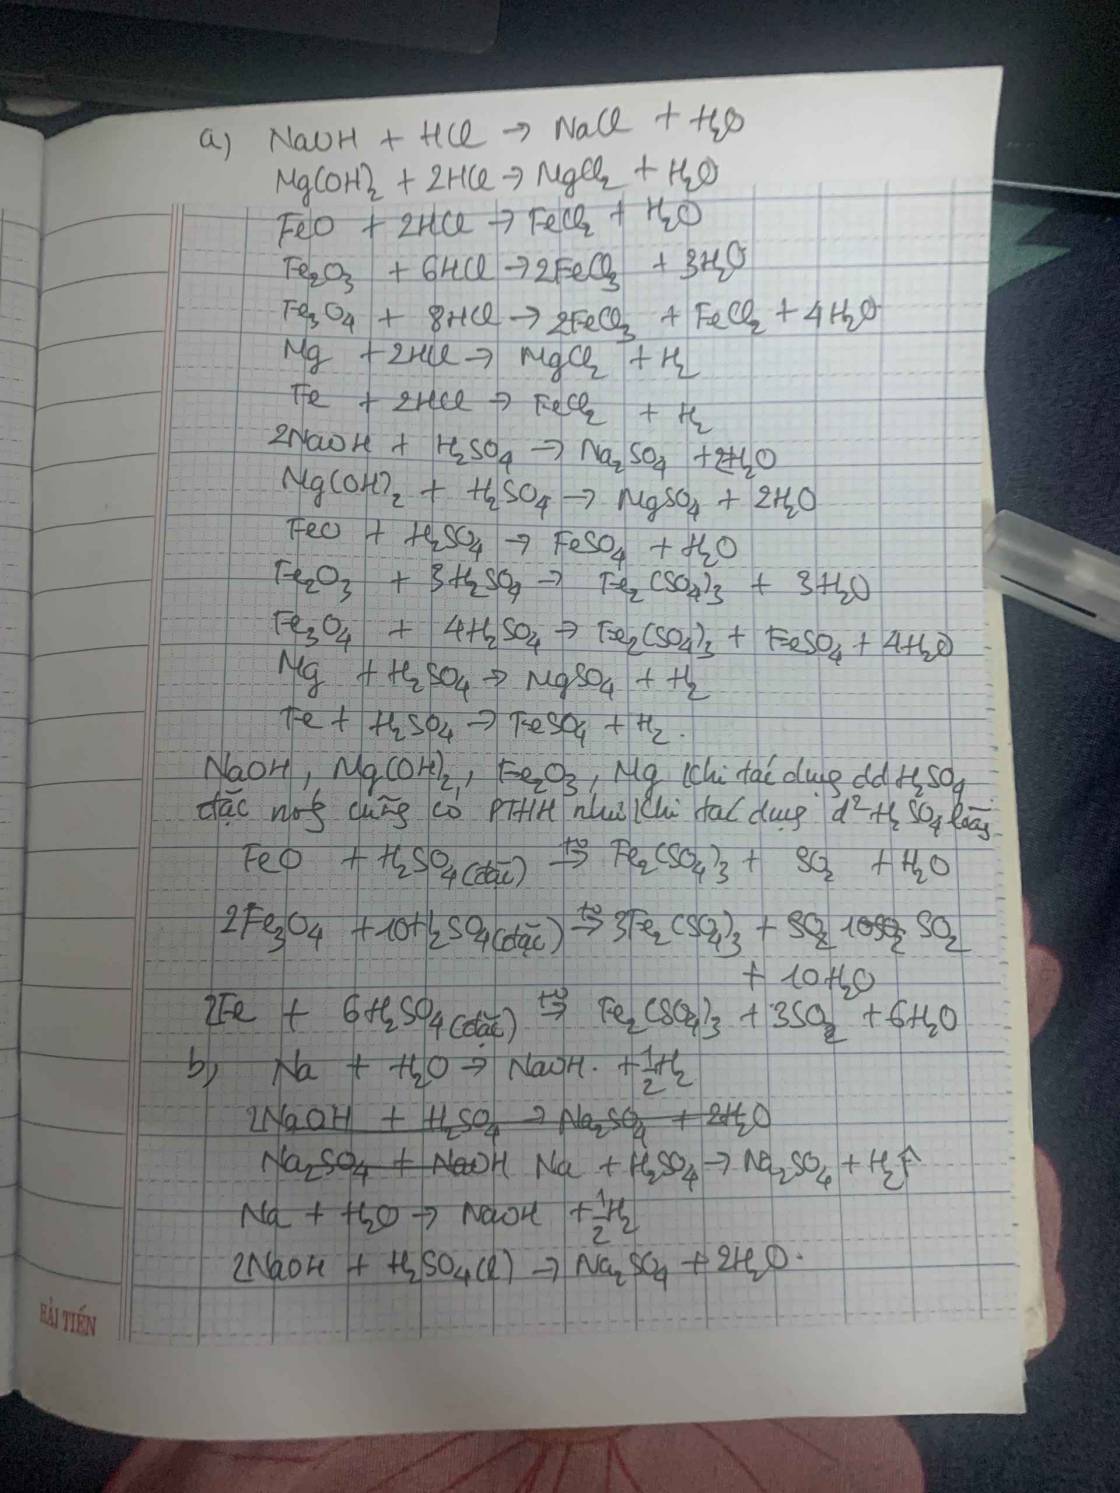 a) NaOH + HCl → NaCl + H₂O
Mg(OH)₂ + 2HCl → MgCl₂ + H₂O
FeO + 2HCl → FeCl₂ + H₂O
Fe₂O₃ + 6HCl → 2FeCl₃ + 3H₂O
Fe₃O₄ + 8HCl → 2FeCl₃ + FeCl₂ + 4H₂O
Mg + 2HCl → MgCl₂ + H₂
Fe + 2HCl → FeCl₂ + H₂
2NaOH + H₂SO₄ → Na₂SO₄ + 2H₂O
Mg(OH)₂ + H₂SO₄ → MgSO₄ + 2H₂O
FeO + H₂SO₄ → FeSO₄ + H₂O
Fe₂O₃ + 3H₂SO₄ → Fe₂(SO₄)₃ + 3H₂O
Fe₃O₄ + 4H₂SO₄ → Fe₂(SO₄)₃ + FeSO₄ + 4H₂O
Mg + H₂SO₄ → MgSO₄ + H₂
Fe + H₂SO₄ → FeSO₄ + H₂.
NaOH, Mg(OH)₂, Fe₂O₃, Mg khi tác dụng dd H₂SO₄
đặc nóng cũng có PTHH như khi tác dụng d² H₂SO₄ loãng
FeO + H₂SO₄ (đặc) t⁰→ Fe₂(SO₄)₃ + SO₂ + H₂O
2Fe₃O₄ + 10H₂SO₄ (đặc) t⁰→ 3Fe₂(SO₄)₃ + SO₂ 10SO₂ SO₂
+ 10H₂O
2Fe + 6H₂SO₄ (đặc) t⁰→ Fe₂(SO₄)₃ + 3SO₂ + 6H₂O
b) Na + H₂O → NaOH. + 1/2 H₂
2NaOH + H₂SO₄ → Na₂SO₄ + 2H₂O
Na₂SO₄ + NaOH Na + H₂SO₄ → Na₂SO₄ + H₂↑
Na + H₂O → NaOH + 1/2 H₂
2NaOH + H₂SO₄(l) → Na₂SO₄ + 2H₂O.
HẢI TIẾN